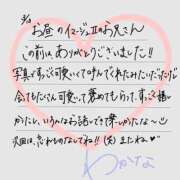 3/2
お昼のイメージⅡのお兄さん
この前は、ありがとうございました!!
写真がすっごく可愛いくて呼んでくれたみたいだったけど
会ってもたくさん可愛いって褒めてもらって、すっごく嬉し
かったし、いろんなお話しできて楽しかったな～
次回は、忘れものなしでね!!(笑)またね、♥
わかな